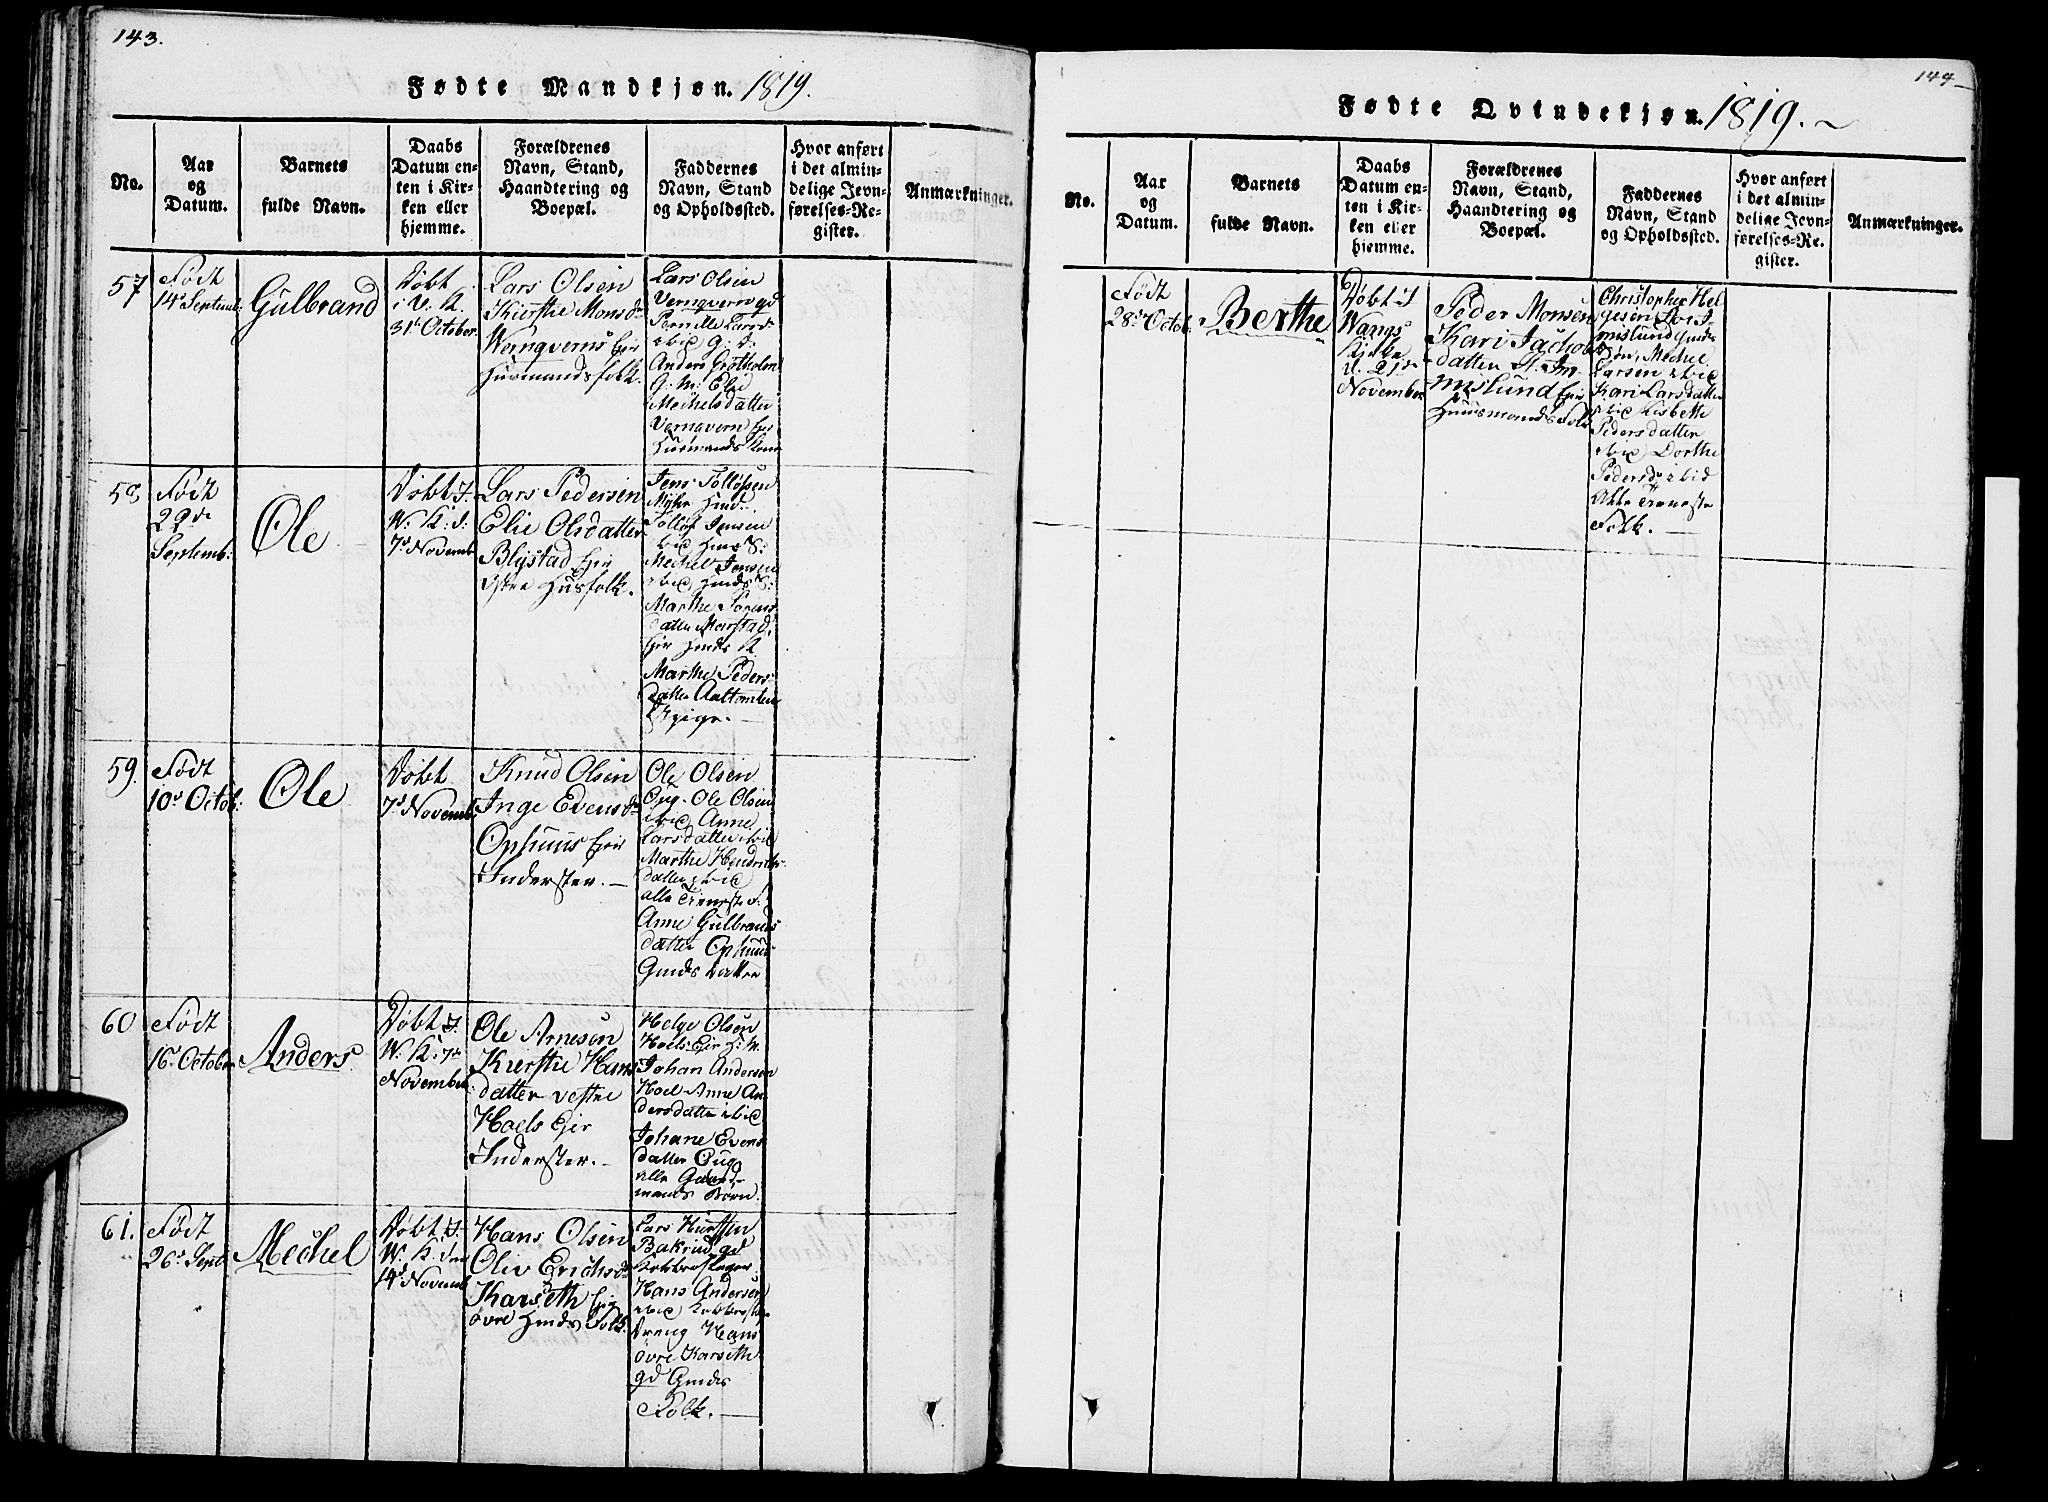 143.
Fødte Mandkjøn. 1819.
No.
Aar
og
Datum.
Barnets
fulde Navn.
Daabs
Datum en-
ten i Kir-
ken eller
hjemme.
Forældrenes
Navn, Stand,
Haandtering og
Boepæl.
Faddernes
Navn, Stand
og Opholdssted.
Hvor anført
i det almin-
delige Jevn-
førelses-Re-
gister.
Anmærkninger.
57
Født
14d Septemb:
Gulbrand
Døbt
i V: K.
31d October.
Lars Olsen
Kirstie Monsd:
Wernqverns Eier
Husmandsfolk.
Lars Olsen
Vernqvern gd
Pernille Larsd:
ibid g: d:
Anders Grötholm
G: M: Elie
Mechelsdatter
Vernqvern Eier
Husmands Kone
58
Født
22de
Septemb:
Ole
Døbt I
W: K: d:
7d Novemb
Lars Pedersen
Elie Olsdatter
Blystad Eier
østre Husfolk.
Jens Tollofsen
Myhr
Tollof Jensen
ibid
Mechel Jensen
ibid
Marthe Sørens
datter Marstad
Eier
Marthe Peders
datter
Pige.
59.
Født
10d Octob:
Ole
Døbt
7d Novemb
Knud Olsen
Inge Evensd:
Ophuus Eier
Inderster.
Ole Olsen
Oug. Ole Olsen
ibid Anne
Larsdatter ibid
Marthe Hendrichs-
datter ibid
alle Tieneste d:
Anne Gulbrands
datter Ophuus
Gmds datter
60
Født
16d October
Anders
Døbt I
W. K: 7d
November
Ole Arnesen
Kierstie Hans
datter vestre
Hoels Eier
Inderster.
Helge Olsen
Hoels Eier H: M.
Johan Andersen
Hoel Anne An
dersdatter ibid
Johane Evens
datter Oug
alle Gaard-
mands Børn.
61.
Født
26d Septb
Mechel
Døbt I
W: K: den
14d Novemb
Hans Olsen
Oliv Erichsd:
Karseth Eier
øvre Hmds Folk.
Lars
Bakrud gd
Kobberslager
Hans Andersen
ibid
Dreng Hans
øvre Karseth
gd Gmds
Folk.
144
Fødte Qvindekjøn. 1819.
No.
Aar
og
Datum.
Barnets
fulde Navn.
Daabs
Datum en-
ten i Kir-
ken eller
hjemme.
Forældrenes
Navn, Stand,
Haandtering og
Boepæl.
Faddernes
Navn, Stand
og Opholdssted.
Hvor anført
i det almin-
delige Jevn-
førelses-Re-
gister.
Anmærkninger.
Født
28d Octob.
Berthe
Døbt I
Wangs
Kirke
d. 21d
November
Peder Monsen
Kari Jachobs
datter
Imislund Eier
Huusmands Folk
Christopher Hel
gesen
Imislund Gmds
Søn, Mechel
Larsen ibid
Kari Larsdatter
ibid Lisbette
Pedersdatter
ibid Dorthe
Pedersd: ibid
Alle Tieneste
Folk.